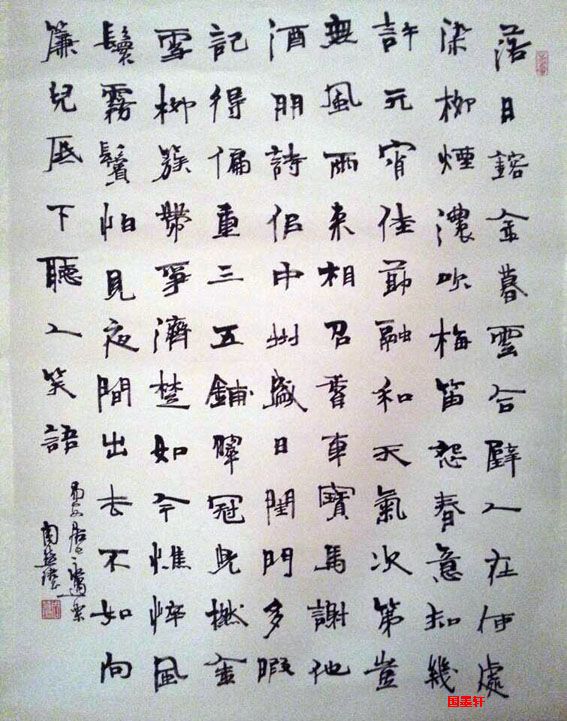 落日鎔金暮雲合璧人在何處
染柳煙濃吹梅笛怨春意知幾
許元宵佳節融和天氣次第豈
無風雨來相召香車寶馬謝他
酒朋詩侶中州盛日閨門多暇
記得偏重三五鋪翠冠兒撚金
雪柳簇帶爭濟楚如今憔悴風
鬟霧鬢怕見夜間出去不如向
簾兒底下聽人笑語
易安居士永遇樂
国墨轩